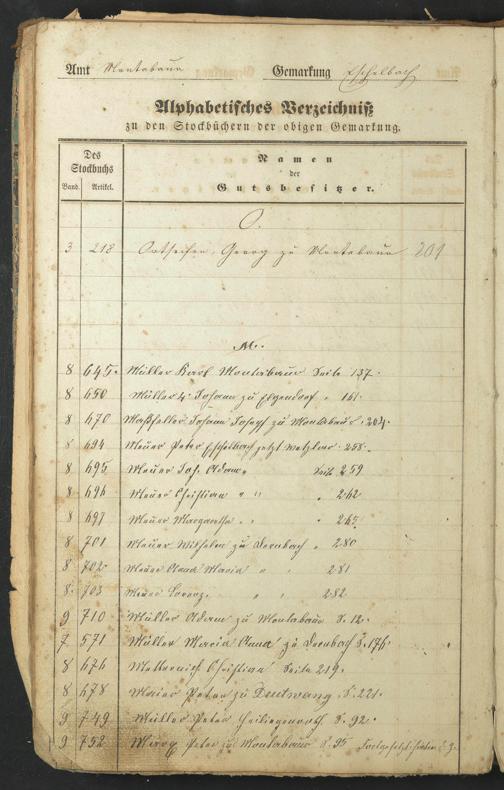 Amt Montabaur Gemarkung Eschelbach
Alphabetisches Verzeichniß
zu den Stockbüchern der obigen Gemarkung.
Des Stockbuchs
Band. Artikel.
Namen
der
Gutsbesitzer.
O.
3 218 Ortseifen, Georg zu Montabaur 201
M.
8 645. Müller Karl Montabaur Seite 137.
8 650 Müller 4. Johann zu Elgendorf " 161.
8 670 Maßfaller Johann Joseph zu Montabaur. 204.
8 694 Meuer Peter Eschelbach jetzt Wetzlar. 258.
8 695 Meuer Joh. Adam " Seite 259
8 696 Meuer Christian " " " 262
8 697 Meuer Margaretha " " " 265
8 701 Meuer Wilhelm zu Dernbach " 280
8 702. Meuer Anna Maria " " 281
8. 703 Meuer Lorenz. " " 282
9 710. Müller Adam zu Montabaur S. 12.
7. 571 Müller Maria Anna zu Dernbach S. 176.
8 676 Metternich Christian Seite 219.
8 678 Maier Peter zu Deutwang S. 221.
9 749 Müller Peter Heiligenroth S. 92.
9 752 Marx Peter zu Montabaur S. 95 Fortgesetzt S. 3.